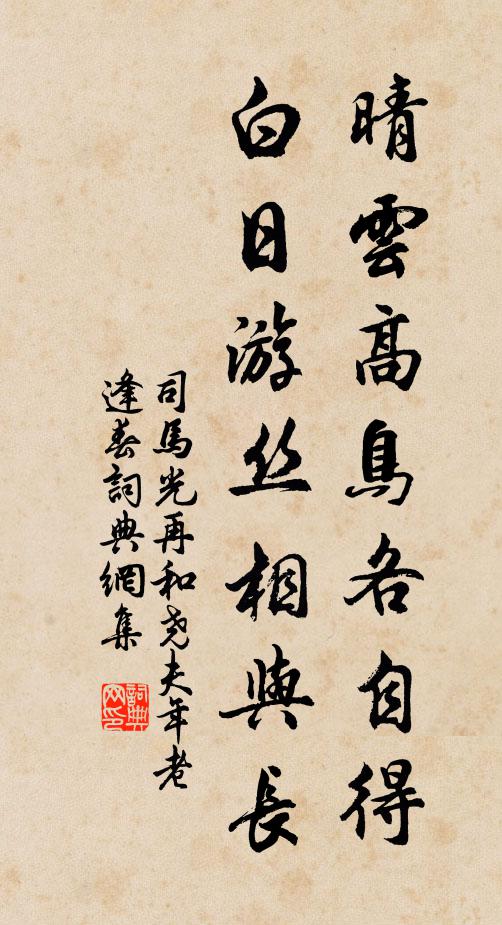 晴雲高鳥各自得
白日游丝相與長
司馬光再和尧夫年老
逢春詞典網集
詞典
网印